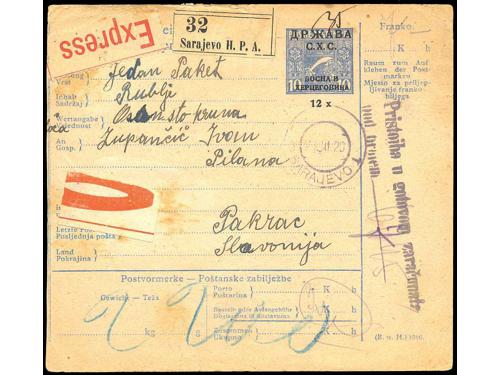 Express
32
Sarajevo H. P. A.
ДРЖАВА
С.Х.С.
БОСНА И
ХЕРЦЕГОВИНА
12 x
Franko
K h
Raum zum Auf-
kleben der Post-
marken
Mjesto za priljep-
ljivanje franko-
biljega
Vrst
Jedan Paket
Inhalt
Sadržaj
Rublje
Wertangabe
Vrijednost
kruna
An
Gosp.
Zupančić Ivan
Pilana
SARAJEVO 1
Pristojba u gotovom zaračunata
Letzte Post
Posljednja pošta
Pakrac
Land
Pokrajina
Slavonija
Postvormerke – Poštanske zabilježbe
Gewicht – Teža
kg
Porto
Poštarina
K h
K h
Zusammen
Ukupno
K h
(B. u. H.) 1916.